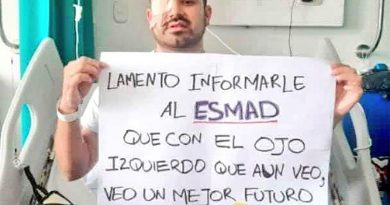 LAMENTO INFORMARLE
AL ESMAD
QUE CON EL OJO
IZQUIERDO QUE AUN VEO,
VEO UN MEJOR FUTURO